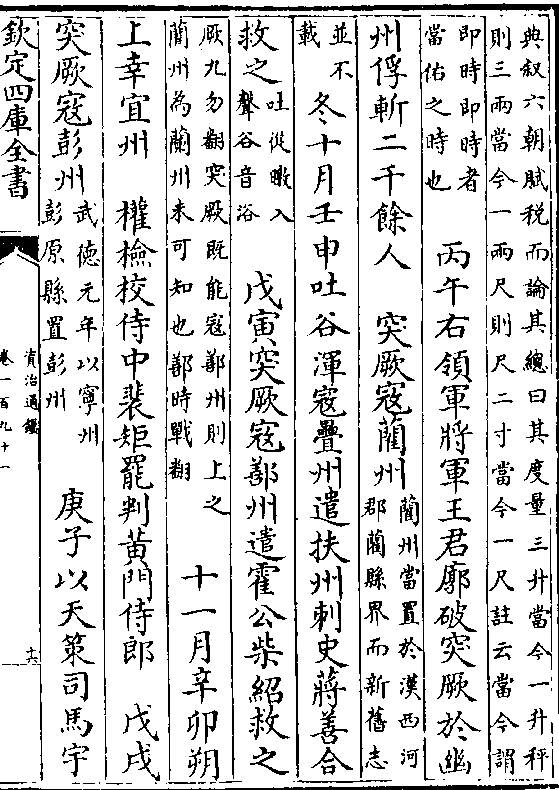 典叙六朝賦税而論其總曰其度量三升當今一升秤
則三兩當今一兩尺則尺二寸當今一尺註云當今謂
即時即時者
當佑之時也
丙午右領軍將軍王君廓破突厥於幽
州俘斬二千餘人
突厥寇藺州
藺州當置於漢西河
郡藺縣界而新舊志
並不
載
冬十月壬申吐谷渾寇疊州遣扶州刺史蔣善合
救之
吐從暾入
聲谷音浴
戊寅突厥寇鄯州遣霍公柴紹救之
厥九勿翻突厥既能寇鄯州則上之
藺州為蘭州未可知也鄯時戰翻
十一月辛卯朔
上幸宜州
權檢校侍中裴矩罷判黃門侍郎
戊戌
突厥寇彭州
武德元年以寧州
彭原縣置彭州
庚子以天策司馬宇
欽定四庫全書
資治通鑑
卷一百九十一
十六